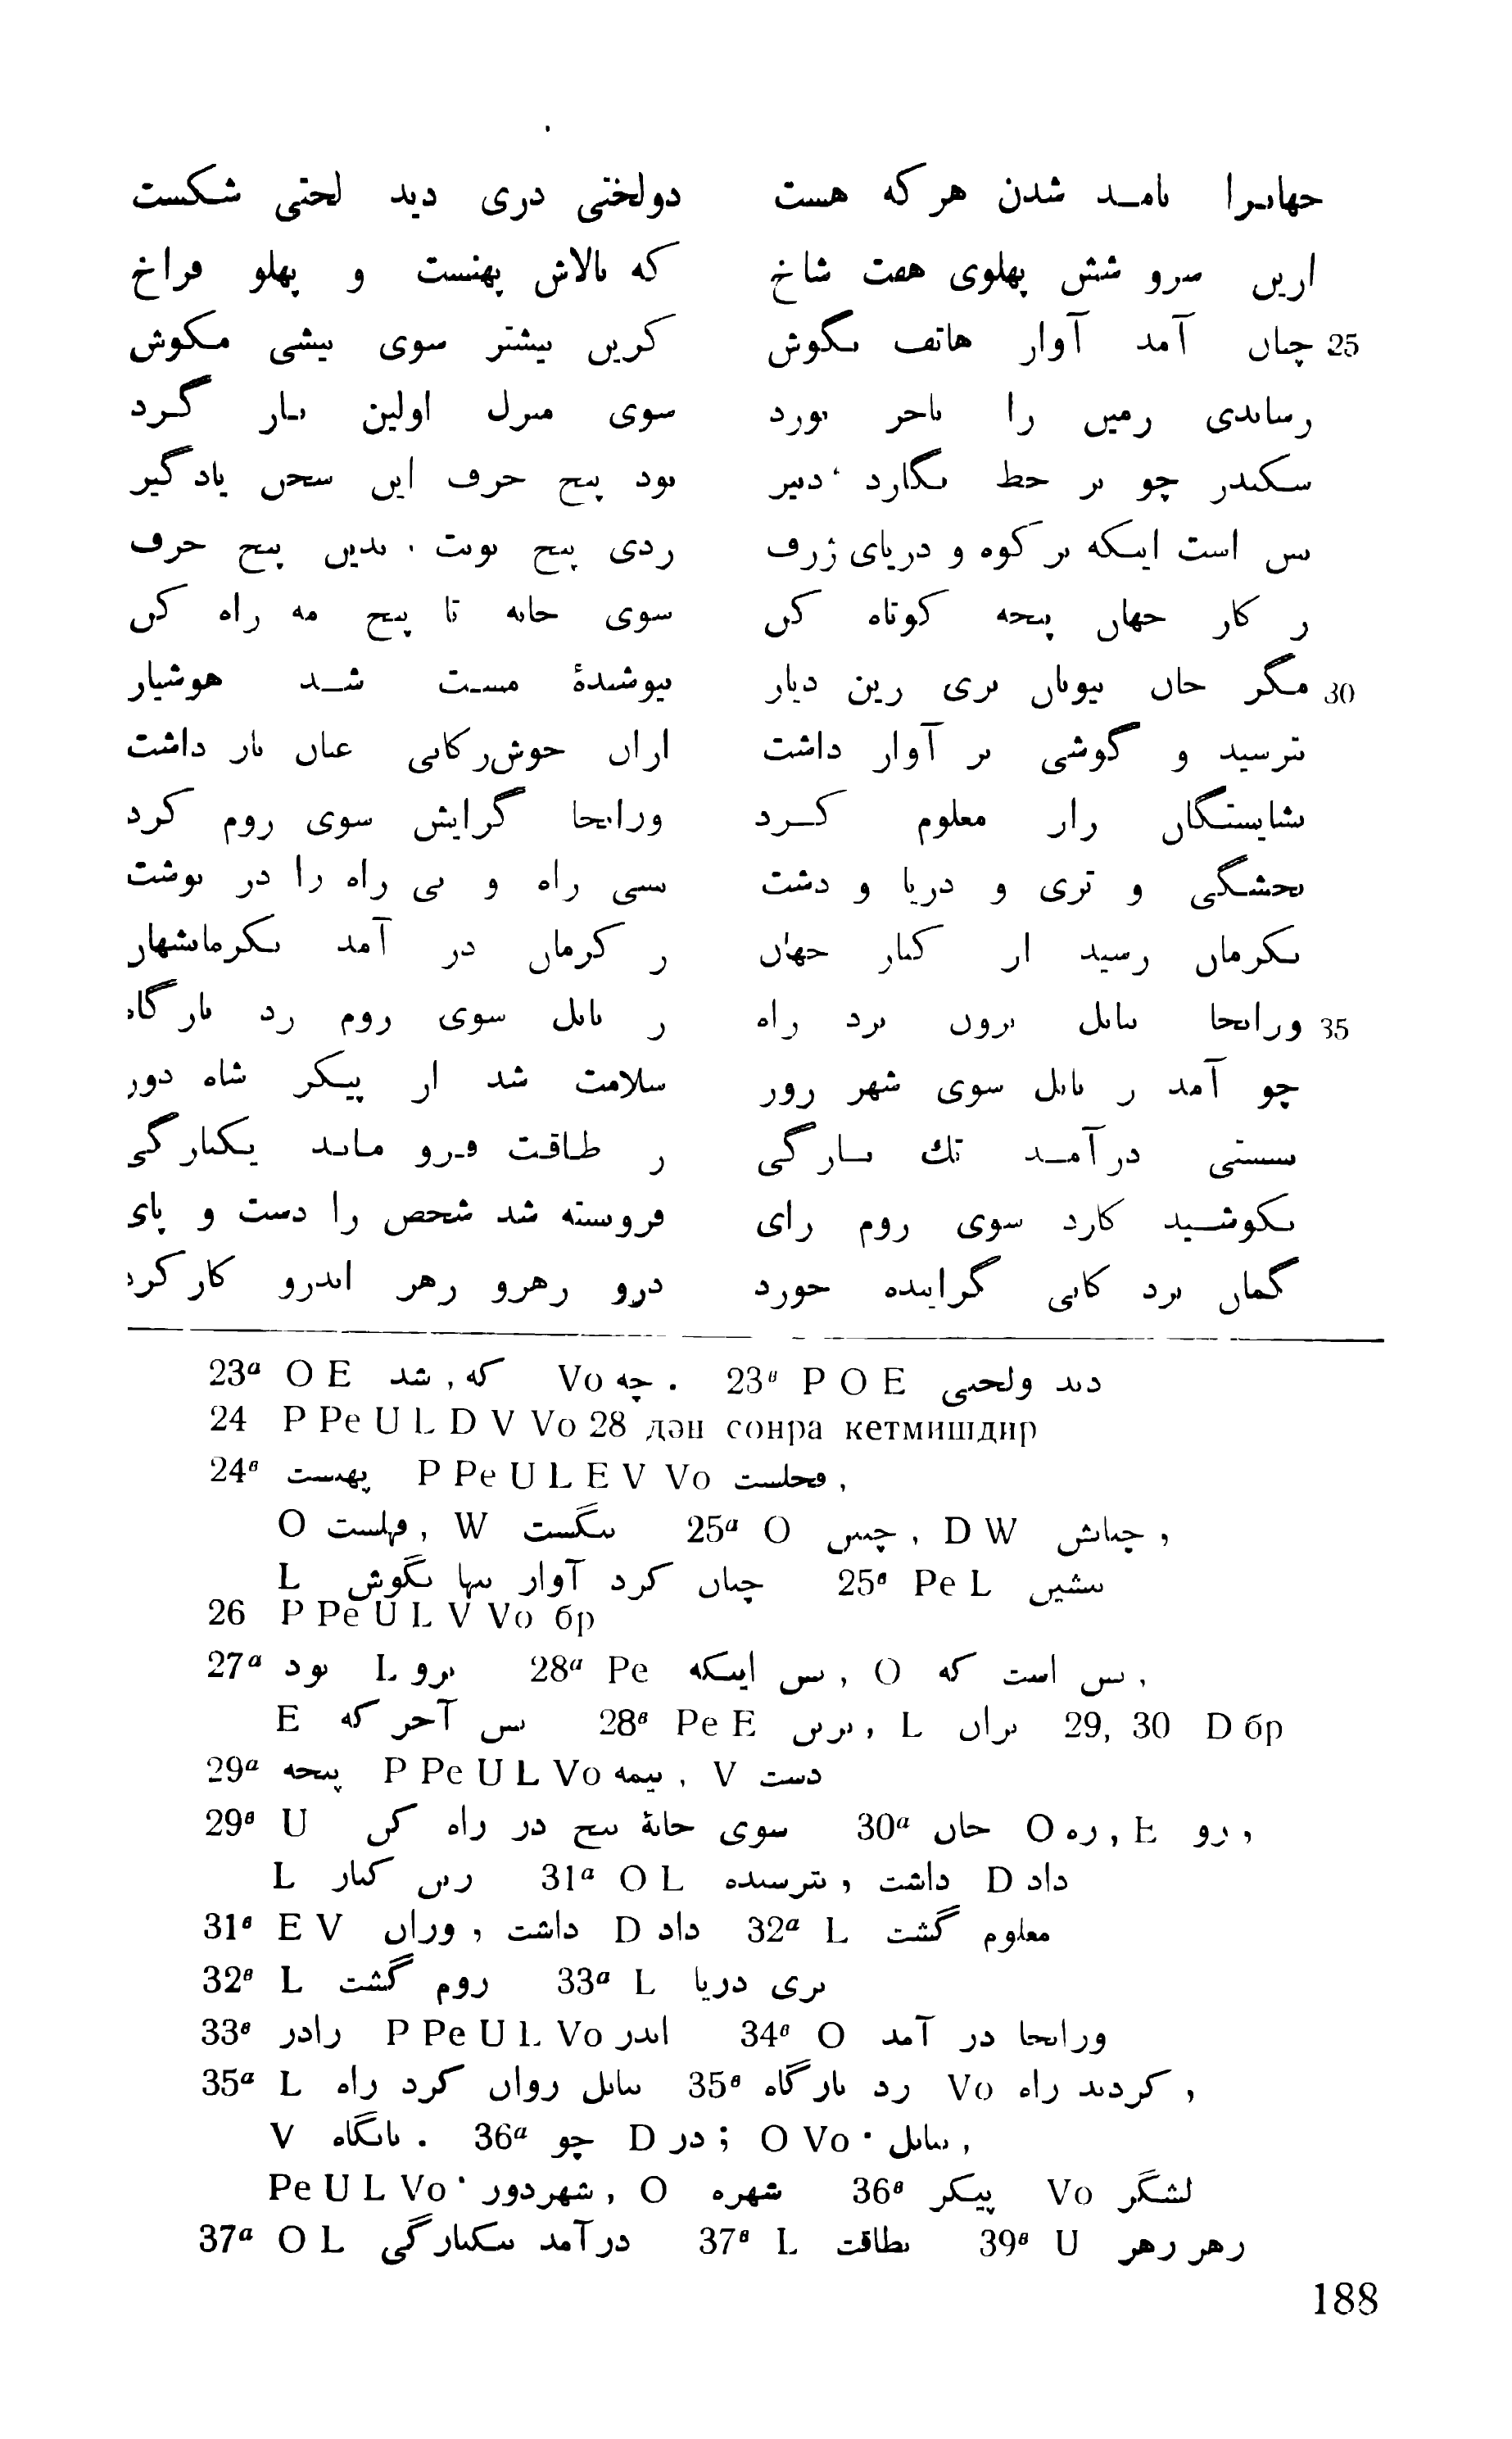 جهانرا بآمد شدن هر که هست دولختی دری دید لختی شکست
ازین سرو شش پهلوی هفت شاخ که بالاش پهنست و پهلو فراخ
25 چنان آمد آواز هاتف بگوش کزین بیشتر سوی بیشی مکوش
رساندی زمین را بآخر نورد سوی منزل اولین باز گرد
سکندر چو بر خط نگارد دبیر بود پنج حرف این سخن یادگیر
بس است اینکه بر کوه و دریای ژرف زدی پنج نوبت بدین پنج حرف
ز کار جهان پنجه کوتاه کن سوی خانه تا پنج مه راه کن
30 مگر جان بیونان بری زین دیار نیوشندهٔ مست شد هوشیار
بترسید و گوشی بر آواز داشت ازان خوش‌رکابی عنان باز داشت
بشایستگان راز معلوم کرد وزانجا گرایش سوی روم کرد
بخشگی و تری و دریا و دشت بسی راه و بی راه را در نوشت
بکرمان رسید از کنار جهان ز کرمان در آمد بکرمانشهان
35 وزانجا ببابل برون برد راه ز بابل سوی روم زد بارگاه
چو آمد ز بابل سوی شهر زور سلامت شد از پیکر شاه دور
بسستی درآمد تك بارگی ز طاقت فرو ماند یکبارگی
بکوشید کارد سوی روم رای فروبسته شد شخص را دست و پای
گمان برد کابی گزاینده خورد درو زهرو زهر اندرو کار کرد
23ª O E که, شد Vo چه . 23ᵇ P O E دید ولختی
24 P Pe U L D V Vo 28 дән сонра кетмишдир
24ᵇ پهنست P Pe U L E V Vo فحلست ,
O فهلست , W سگست 25ª O چنین , D W چنانش ,
L چنان کرد آواز سها بگوش 25ᵇ Pe L بیشین
26 P Pe U L V Vo бр
27ª بود L برو 28ª Pe بس اینکه , O بس است که ,
E بس آخر که 28ᵇ Pe E برین , L بران 29, 30 D бр
29ª پنجه P Pe U L Vo نیمه , V دست
29ᵇ U سوی خانهٔ پنج در راه کن 30ª جان O ره , E رو ,
L زین کنار 31ª O L بترسنده , داشت D داد
31ᵇ E V وزان , داشت D داد 32ª L معلوم گشت
32ᵇ L روم گشت 33ª L بری دریا
33ᵇ رادر P Pe U L Vo اندر 34ᵇ O وزانجا در آمد
35ª L ببابل روان کرد راه 35ᵇ زد بارگاه Vo کردند راه ,
V بانگاه . 36ª چو D در ; O Vo ببابل ,
Pe U L Vo شهردور , O شهره 36ᵇ پیکر Vo لشگر
37ª O L درآمد بیکبارگی 37ᵇ L بطاقت 39ᵇ U زهر زهر
188